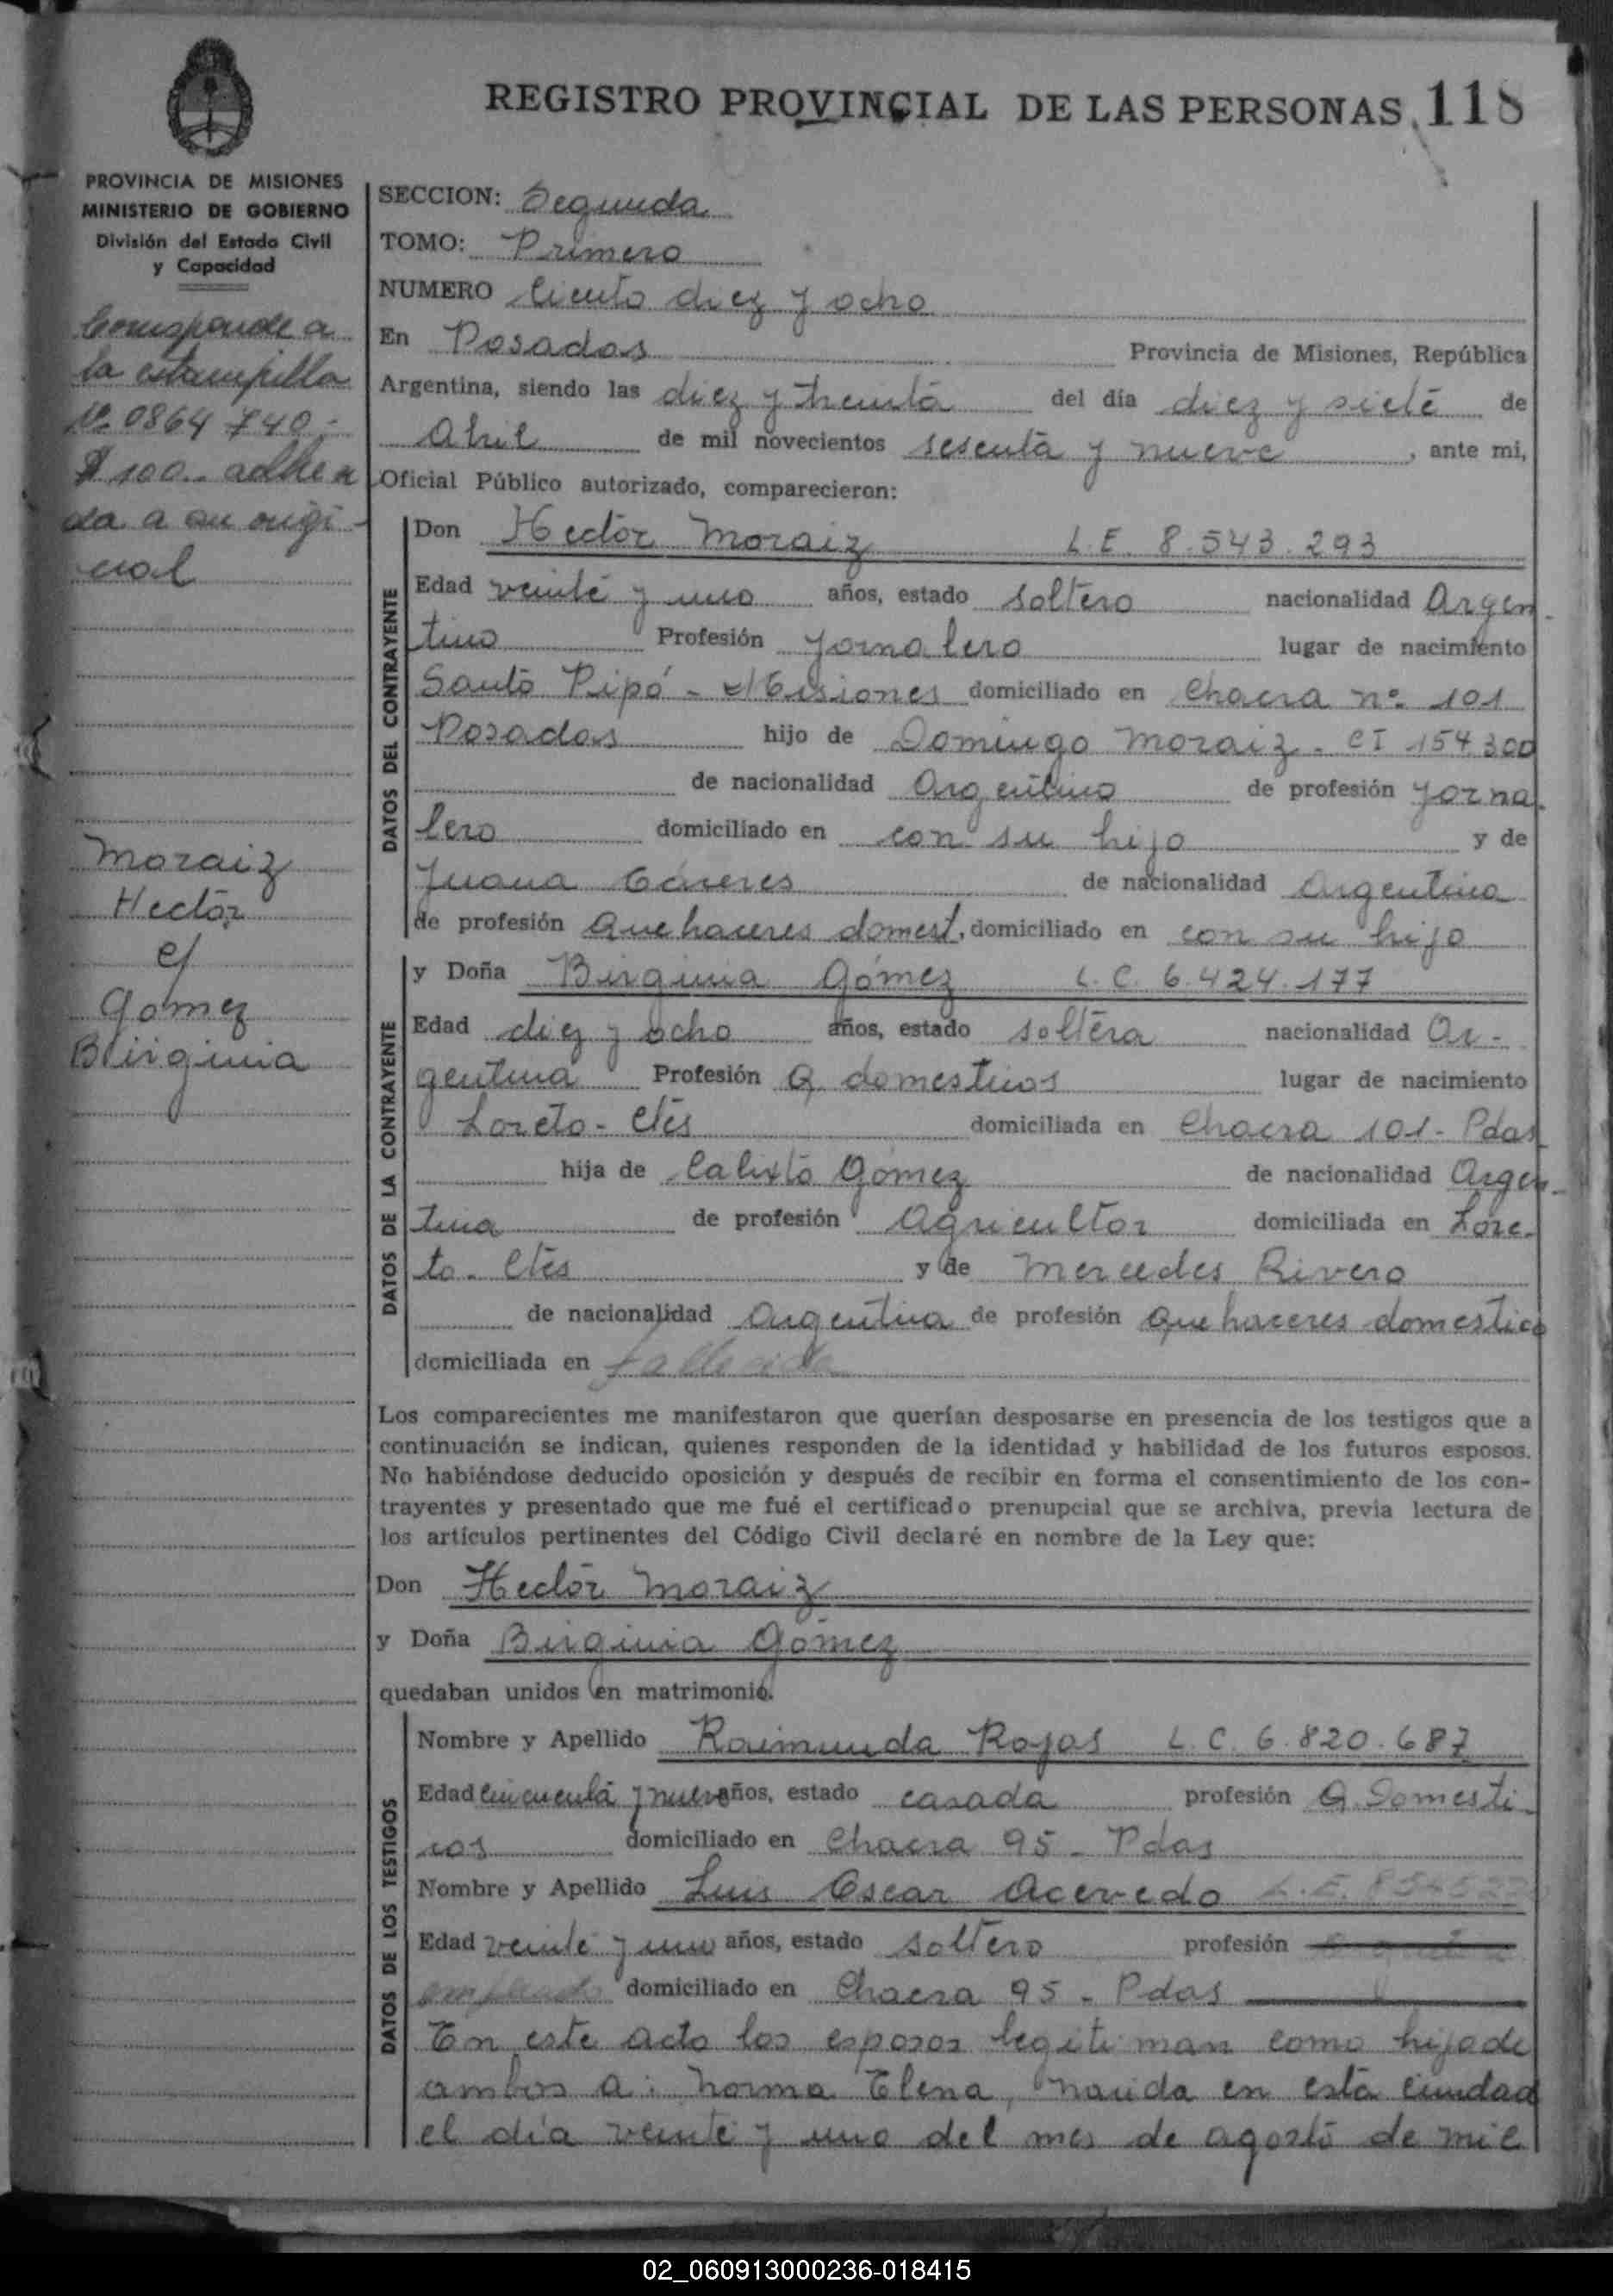 REGISTRO PROVINCIAL DE LAS PERSONAS 118
PROVINCIA DE MISIONES
MINISTERIO DE GOBIERNO
División del Estado Civil
y Capacidad
Corresponde a
la estampilla
Nº 0864740.-
$ 100.- adheri
da a su origi-
nal
Moraiz
Hector
c/
Gomez
Birginia
SECCION: Segunda
TOMO: Primero
NUMERO Ciento diez y ocho
En Posadas Provincia de Misiones, República
Argentina, siendo las diez y treinta del día diez y siete de
Abril de mil novecientos sesenta y nueve, ante mi,
Oficial Público autorizado, comparecieron:
DATOS DEL CONTRAYENTE
Don Hector Moraiz L.E. 8.543.293
Edad veinte y uno años, estado soltero nacionalidad Argen-
tino Profesión Jornalero lugar de nacimiento
Santo Pipó - Misiones domiciliado en Chacra nº 101
Posadas hijo de Domingo Moraiz - CI 154.300
de nacionalidad Argentino de profesión Jorna-
lero domiciliado en con su hijo y de
Juana Cáceres de nacionalidad Argentina
de profesión Quehaceres domest. domiciliado en con su hijo
DATOS DE LA CONTRAYENTE
y Doña Birginia Gómez L.C. 6.424.177
Edad diez y ocho años, estado soltera nacionalidad Ar-
gentina Profesión Q. domesticos lugar de nacimiento
Loreto - Ctes domiciliada en Chacra 101 - Pdas
hija de Calixto Gómez de nacionalidad Argen-
tina de profesión Agricultor domiciliada en Lore-
to - Ctes y de Mercedes Rivero
de nacionalidad Argentina de profesión Quehaceres domestico
domiciliada en fallecida
Los comparecientes me manifestaron que querían desposarse en presencia de los testigos que a
continuación se indican, quienes responden de la identidad y habilidad de los futuros esposos.
No habiéndose deducido oposición y después de recibir en forma el consentimiento de los con-
trayentes y presentado que me fué el certificado prenupcial que se archiva, previa lectura de
los artículos pertinentes del Código Civil declaré en nombre de la Ley que:
Don Hector Moraiz
y Doña Birginia Gómez
quedaban unidos en matrimonio.
DATOS DE LOS TESTIGOS
Nombre y Apellido Raimunda Rojas L.C. 6.820.687
Edad cincuenta y nueve años, estado casada profesión Q. Domesti-
cos domiciliado en Chacra 95 - Pdas
Nombre y Apellido Luis Oscar Acevedo L.E.
Edad veinte y uno años, estado soltero profesión
empleado domiciliado en Chacra 95 - Pdas
En este acto los esposos legitiman como hija de
ambos a: Norma Elena, nacida en esta ciudad
el día veinte y uno del mes de agosto de mil
02_060913000236-018415